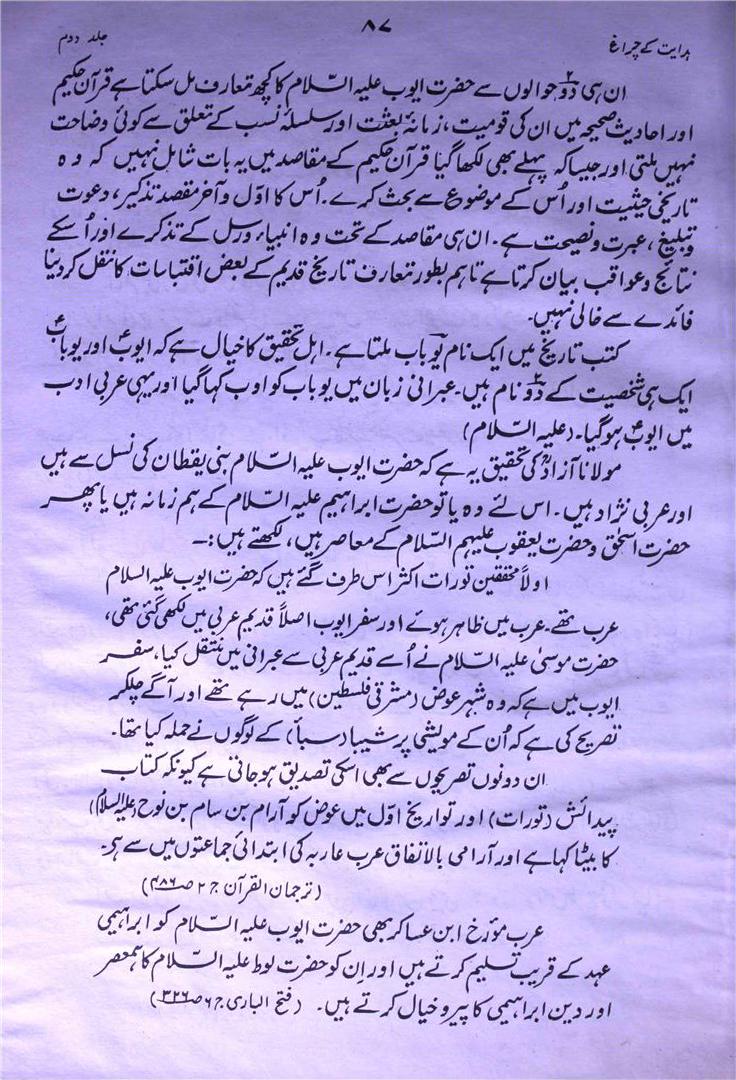 ہدایت کے چراغ
۸۷
جلد دوم
ان ہی دو۲ حوالوں سے حضرت ایوب علیہ السّلام کا کچھ تعارف مل سکتا ہے قرآن حکیم
اور احادیث صحیحہ میں ان کی قومیت، زمانۂ بعثت اور سلسلۂ نسب کے تعلق سے کوئی وضاحت
نہیں ملتی اور جیسا کہ پہلے بھی لکھا گیا قرآن حکیم کے مقاصد میں یہ بات شامل نہیں کہ وہ
تاریخی حیثیت اور اُس کے موضوع سے بحث کرے۔ اُس کا اوّل و آخر مقصد تذکیر، دعوت
و تبلیغ، عبرت و نصیحت ہے۔ ان ہی مقاصد کے تحت وہ انبیاء و رسل کے تذکرے اور اُسکے
نتائج و عواقب بیان کرتا ہے تاہم بطور تعارف تاریخ قدیم کے بعض اقتباسات کا نقل کردینا
فائدے سے خالی نہیں۔
کتب تاریخ میں ایک نام یوباب ملتا ہے۔ اہل تحقیق کا خیال ہے کہ ایوبؑ اور یوبابؑ
ایک ہی شخصیت کے دو۲ نام ہیں۔ عبرانی زبان میں یوباب کو اوب کہا گیا اور یہی عربی ادب
میں ایوبؑ ہوگیا۔ (علیہ السّلام)
مولانا آزادؒ کی تحقیق یہ ہے کہ حضرت ایوب علیہ السّلام بنی یقطان کی نسل سے ہیں
اور عربی نژاد ہیں۔ اس لئے وہ یا تو حضرت ابراہیم علیہ السّلام کے ہم زمانہ ہیں یا پھر
حضرت اسحٰق و حضرت یعقوب علیہم السّلام کے معاصر ہیں، لکھتے ہیں:۔
اولاً محققین تورات اکثر اس طرف گئے ہیں کہ حضرت ایوب علیہ السلام
عرب تھے۔ عرب میں ظاہر ہوئے اور سفر ایوب اصلاً قدیم عربی میں لکھی گئی تھی،
حضرت موسیٰ علیہ السّلام نے اُسے قدیم عربی سے عبرانی میں منتقل کیا، سفر
ایوب میں ہے کہ وہ شہر عوض (مشرقی فلسطین) میں رہتے تھے اور آگے چلکر
تصریح کی ہے کہ اُن کے مویشی پر شیبا (سبأ) کے لوگوں نے حملہ کیا تھا۔
ان دونوں تصریحوں سے بھی اسکی تصدیق ہو جاتی ہے کیونکہ کتاب
پیدائش (تورات) اور تواریخ اوّل میں عوض کو آرام بن سام بن نوح (علیہ السلام)
کا بیٹا کہا ہے اور آرامی بالاتفاق عرب عاربہ کی ابتدائی جماعتوں میں سے ہیں۔
(ترجمان القرآن ج۲ ص۴۸۶)
عرب مؤرخ ابن عساکر بھی حضرت ایوب علیہ السّلام کو ابراہیمی
عہد کے قریب تسلیم کرتے ہیں اور اِن کو حضرت لوط علیہ السّلام کا ہمعصر
اور دین ابراہیمی کا پیرو خیال کرتے ہیں۔ (فتح الباری ج۶ ص۳۲۶)